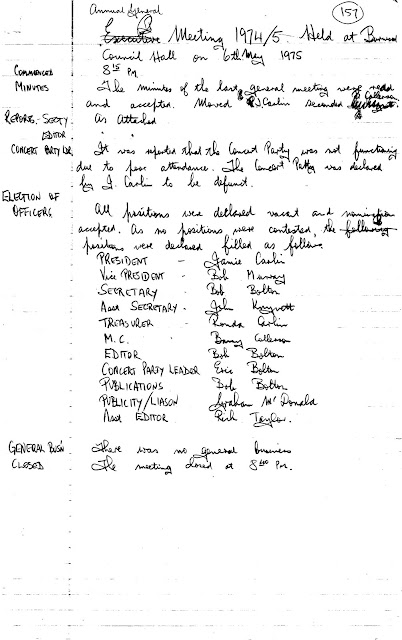 Annual General
(157)
Executive Meeting 1974/5 Held at Burwood
Council Hall on 6th May 1975
COMMENCED 8 15 PM.
MINUTES The minutes of the last general meeting were read
and accepted. Moved J Carlin seconded B Calleran
REPORTS - SECTY As Attached
EDITOR "
CONCERT PARTY LDR. It was reported that the Concert Party was not functioning
due to poor attendance. The Concert Party was declared
by J. Carlin to be defunct.
ELECTION OF
OFFICERS All positions were declared vacant and nominations
accepted. As no positions were contested, the following
positions were declared filled as follows
PRESIDENT - Jamie Carlin
VICE PRESIDENT - Bob Murray
SECRETARY - Bob Bolton
Asst SECRETARY - John
TREASURER - Ronda Carlin
M.C. - Barry Calleran
EDITOR - Bob Bolton
CONCERT PARTY LEADER Eric Bolton
PUBLICATIONS Bob Bolton
PUBLICITY/LIASON Graham McDonald
Asst EDITOR - Rich Taylor.
GENERAL BUS'N There was no general business
CLOSED The meeting closed at 8 40 PM.